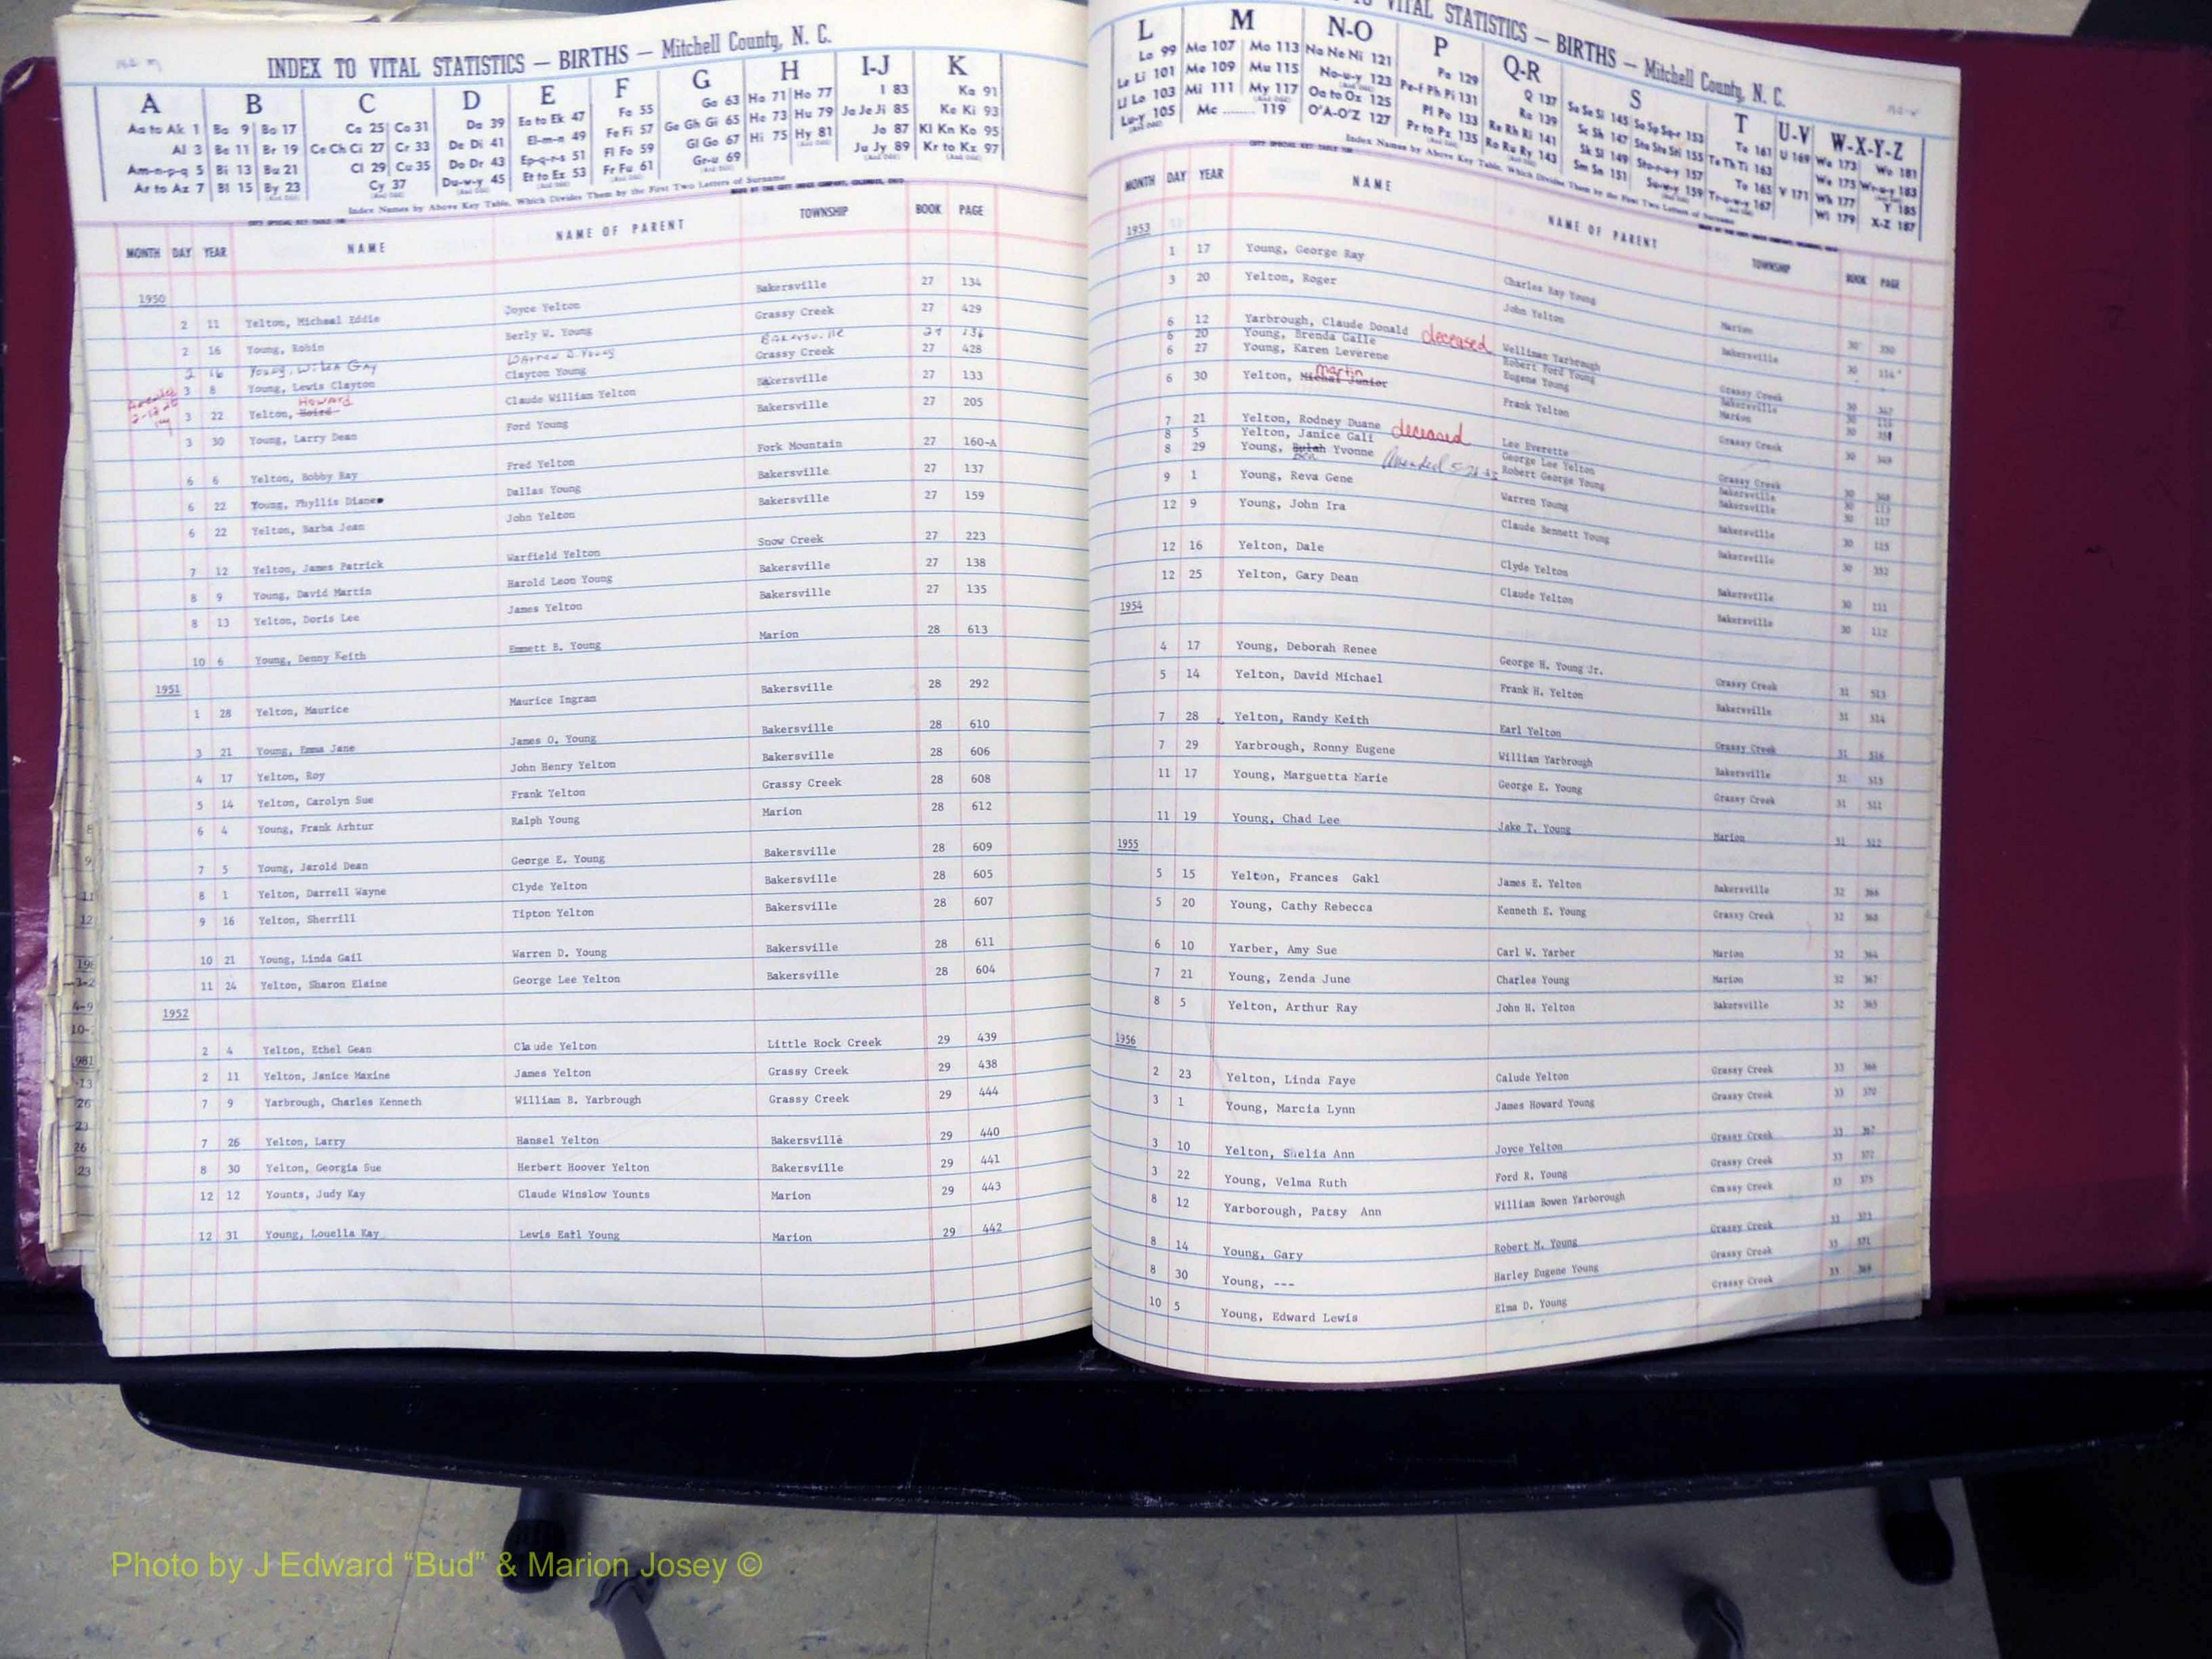 INDEX TO VITAL STATISTICS — BIRTHS — Mitchell County, N. C.
A B C D E F G H I-J K
Aa to Ak 1 Ba 9 Bo 17 Ca 25 Co 31 Da 39 Ea to Ek 47 Fa 55 Ga 63 Ha 71 Ho 77 I 83 Ka 91
Al 3 Be 11 Br 19 Ce Ch Ci 27 Cr 33 De Di 41 El-m-n 49 Fe Fi 57 Ge Gh Gi 65 He 73 Hu 79 Ja Je Ji 85 Ke Ki 93
Am-n-p-q 5 Bi 13 Bu 21 Cl 29 Cu 35 Do Dr 43 Ep-q-r-s 51 Fl Fo 59 Gl Go 67 Hi 75 Hy 81 Jo 87 Kl Kn Ko 95
Ar to Az 7 Bl 15 By 23 Cy 37 Du-w-y 45 Et to Ez 53 Fr Fu 61 Gr-u 69 Ju Jy 89 Kr to Kz 97
Index Names by Above Key Table, Which Divides Them by the First Two Letters of Surname
MONTH DAY YEAR NAME NAME OF PARENT TOWNSHIP BOOK PAGE
1950
2 11 Yelton, Micheal Eddie Joyce Yelton Bakersville 27 134
2 16 Young, Robin Berly W. Young Grassy Creek 27 429
2 16 Young, Wilma Gay Warren D. Young Bakersville 27 136
3 8 Young, Lewis Clayton Clayton Young Grassy Creek 27 428
Howard
3 22 Yelton, Claude William Yelton Bakersville 27 133
3 30 Young, Larry Dean Ford Young Bakersville 27 205
6 6 Yelton, Bobby Ray Fred Yelton Fork Mountain 27 160-A
6 22 Young, Phyllis Diane Dallas Young Bakersville 27 137
6 22 Yelton, Barba Jean John Yelton Bakersville 27 159
7 12 Yelton, James Patrick Warfield Yelton Snow Creek 27 223
8 9 Young, David Martin Harold Leon Young Bakersville 27 138
8 13 Yelton, Doris Lee James Yelton Bakersville 27 135
10 6 Young, Denny Keith Emmett B. Young Marion 28 613
1951
1 28 Yelton, Maurice Maurice Ingram Bakersville 28 292
3 21 Young, Emma Jane James O. Young Bakersville 28 610
4 17 Yelton, Roy John Henry Yelton Bakersville 28 606
5 14 Yelton, Carolyn Sue Frank Yelton Grassy Creek 28 608
6 4 Young, Frank Arhtur Ralph Young Marion 28 612
7 5 Young, Jarold Dean George E. Young Bakersville 28 609
8 1 Yelton, Darrell Wayne Clyde Yelton Bakersville 28 605
9 16 Yelton, Sherrill Tipton Yelton Bakersville 28 607
10 21 Young, Linda Gail Warren D. Young Bakersville 28 611
11 24 Yelton, Sharon Elaine George Lee Yelton Bakersville 28 604
1952
2 4 Yelton, Ethel Gean Claude Yelton Little Rock Creek 29 439
2 11 Yelton, Janice Maxine James Yelton Grassy Creek 29 438
7 9 Yarbrough, Charles Kenneth William B. Yarbrough Grassy Creek 29 444
7 26 Yelton, Larry Hansel Yelton Bakersville 29 440
8 30 Yelton, Georgia Sue Herbert Hoover Yelton Bakersville 29 441
12 12 Younts, Judy Kay Claude Winslow Younts Marion 29 443
12 31 Young, Louella Kay Lewis Earl Young Marion 29 442
VITAL STATISTICS — BIRTHS — Mitchell County, N. C.
L M N-O P Q-R S T U-V W-X-Y-Z
La 99 Ma 107 Mo 113 Na Ne Ni 121 Pa 129 Q 137 Sa Se Si 145 So Sp Sq-r 153 Ta 161 U 169 Wa 173 Wo 181
Le Li 101 Me 109 Mu 115 No-u-y 123 Pe-f Ph Pi 131 Ra 139 Sc Sh 147 Sta Ste Sti 155 Te Th Ti 163 We 175 Wr-u-y 183
Ll Lo 103 Mi 111 My 117 Oa to Oz 125 Pl Po 133 Re Rh Ri 141 Sk Sl 149 Sto-r-u-y 157 To 165 V 171 Wh 177 Y 185
Lu-y 105 Mc 119 O'A-O'Z 127 Pr to Pz 135 Ro Ru Ry 143 Sm Sn 151 Su-w-y 159 Tr-u-w-y 167 Wi 179 X-Z 187
Index Names by Above Key Table, Which Divides Them by the First Two Letters of Surname
MONTH DAY YEAR NAME NAME OF PARENT TOWNSHIP BOOK PAGE
1953
1 17 Young, George Ray Charles Ray Young Marion 30
3 20 Yelton, Roger John Yelton Bakersville 30 114
6 12 Yarbrough, Claude Donald deceased Welliman Yarbrough Grassy Creek 30
6 20 Young, Brenda Gaile Robert Ford Young Bakersville 30
6 27 Young, Karen Leverene Eugene Young Marion 30
Martin
6 30 Yelton, Michal Junior Frank Yelton Grassy Creek 30 349
7 21 Yelton, Rodney Duane Lee Everette Grassy Creek 30
8 5 Yelton, Janice Gali deceased George Lee Yelton Bakersville 30 113
8 29 Young, Bulah Yvonne Amended Robert George Young Bakersville 30 117
9 1 Young, Reva Gene Warren Young Bakersville 30 115
12 9 Young, John Ira Claude Bennett Young Bakersville 30 352
12 16 Yelton, Dale Clyde Yelton Bakersville 30 111
12 25 Yelton, Gary Dean Claude Yelton Bakersville 30 112
1954
4 17 Young, Deborah Renee George H. Young Jr. Grassy Creek 31 513
5 14 Yelton, David Michael Frank H. Yelton Bakersville 31 514
7 28 Yelton, Randy Keith Earl Yelton Grassy Creek 31 516
7 29 Yarbrough, Ronny Eugene William Yarbrough Bakersville 31 515
11 17 Young, Marguetta Marie George E. Young Grassy Creek 31 511
11 19 Young, Chad Lee Jake T. Young Marion 31 512
1955
5 15 Yelton, Frances Gakl James E. Yelton Bakersville 32 366
5 20 Young, Cathy Rebecca Kenneth E. Young Grassy Creek 32 368
6 10 Yarber, Amy Sue Carl W. Yarber Marion 32 364
7 21 Young, Zenda June Charles Young Marion 32 367
8 5 Yelton, Arthur Ray John H. Yelton Bakersville 32 365
1956
2 23 Yelton, Linda Faye Calude Yelton Grassy Creek 33
3 1 Young, Marcia Lynn James Howard Young Grassy Creek 33 370
3 10 Yelton, Shelia Ann Joyce Yelton Grassy Creek 33 367
3 22 Young, Velma Ruth Ford R. Young Grassy Creek 33 372
8 12 Yarborough, Patsy Ann William Bowen Yarborough Grassy Creek 33
8 14 Young, Gary Robert M. Young Grassy Creek 33 373
8 30 Young, --- Harley Eugene Young Grassy Creek 33 371
10 5 Young, Edward Lewis Elma D. Young Grassy Creek 33 369
Photo by J Edward “Bud” & Marion Josey ©